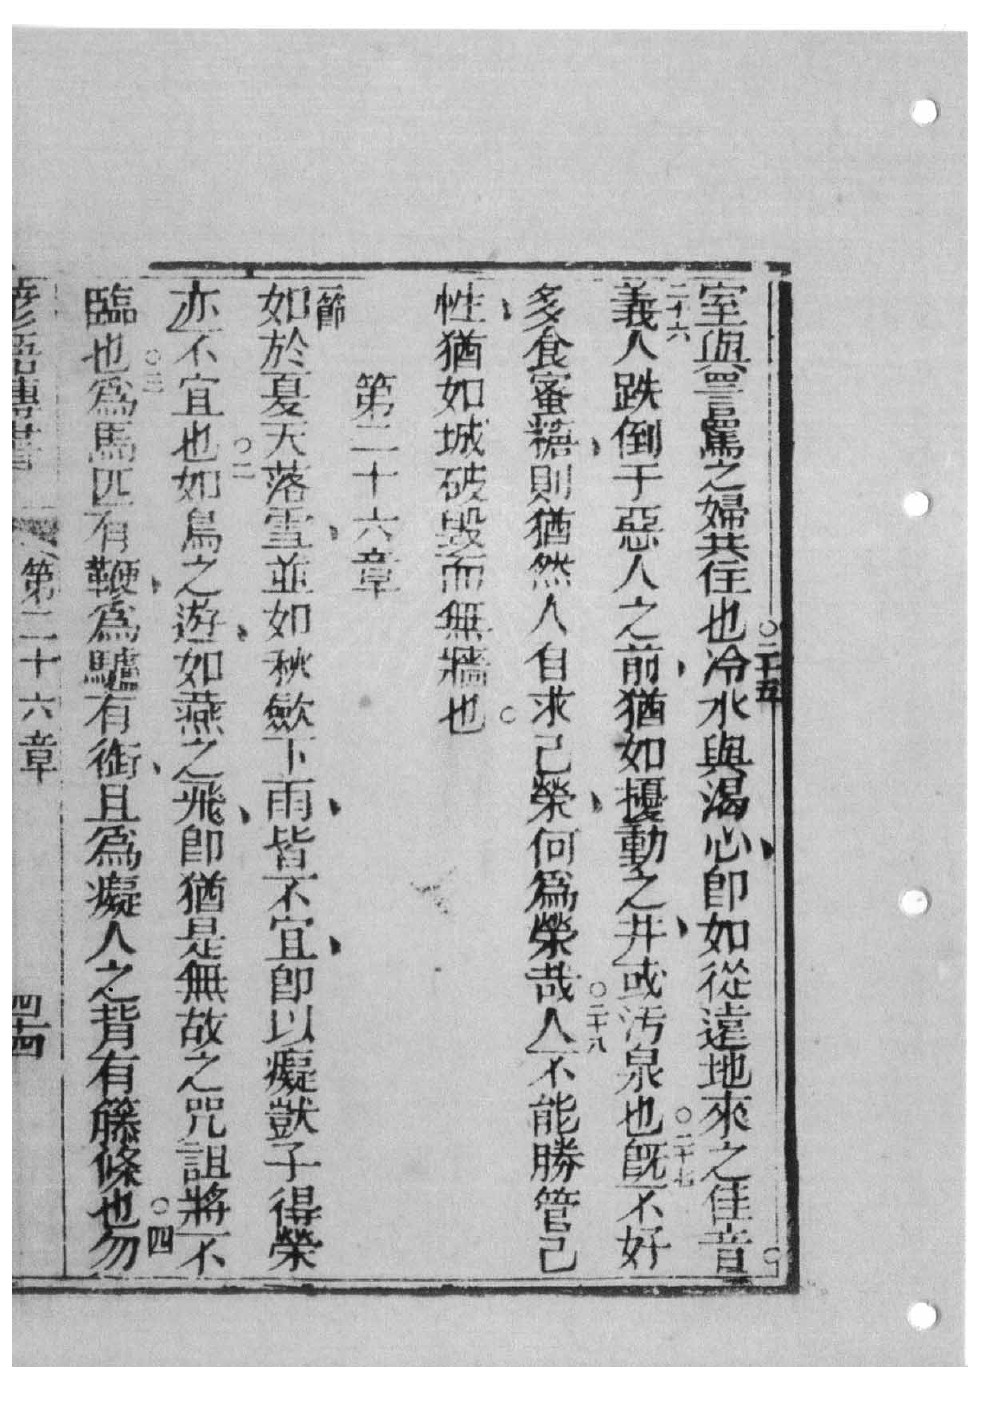 室與詈罵之婦共住也○二十五冷水與渴心、即如從遠地來之佳音○
二十六義人跌倒于惡人之前、猶如擾動之井、或污泉也○二十七旣不好
多食蜜糖、則猶然人自求己榮、何爲榮哉○二十八人不能勝管己
性、猶如城破毀而無牆也○
第二十六章
一節如於夏天落雪、並如秋歛下雨、皆不宜、即以癡獃子得榮
亦不宜也○二如鳥之遊、如燕之飛、即猶是無故之咒詛將不
臨也○三爲馬匹有鞭、爲驢有銜、且爲癡人之背有籐條也○四勿
諺語傳書 第二十六章 四十四